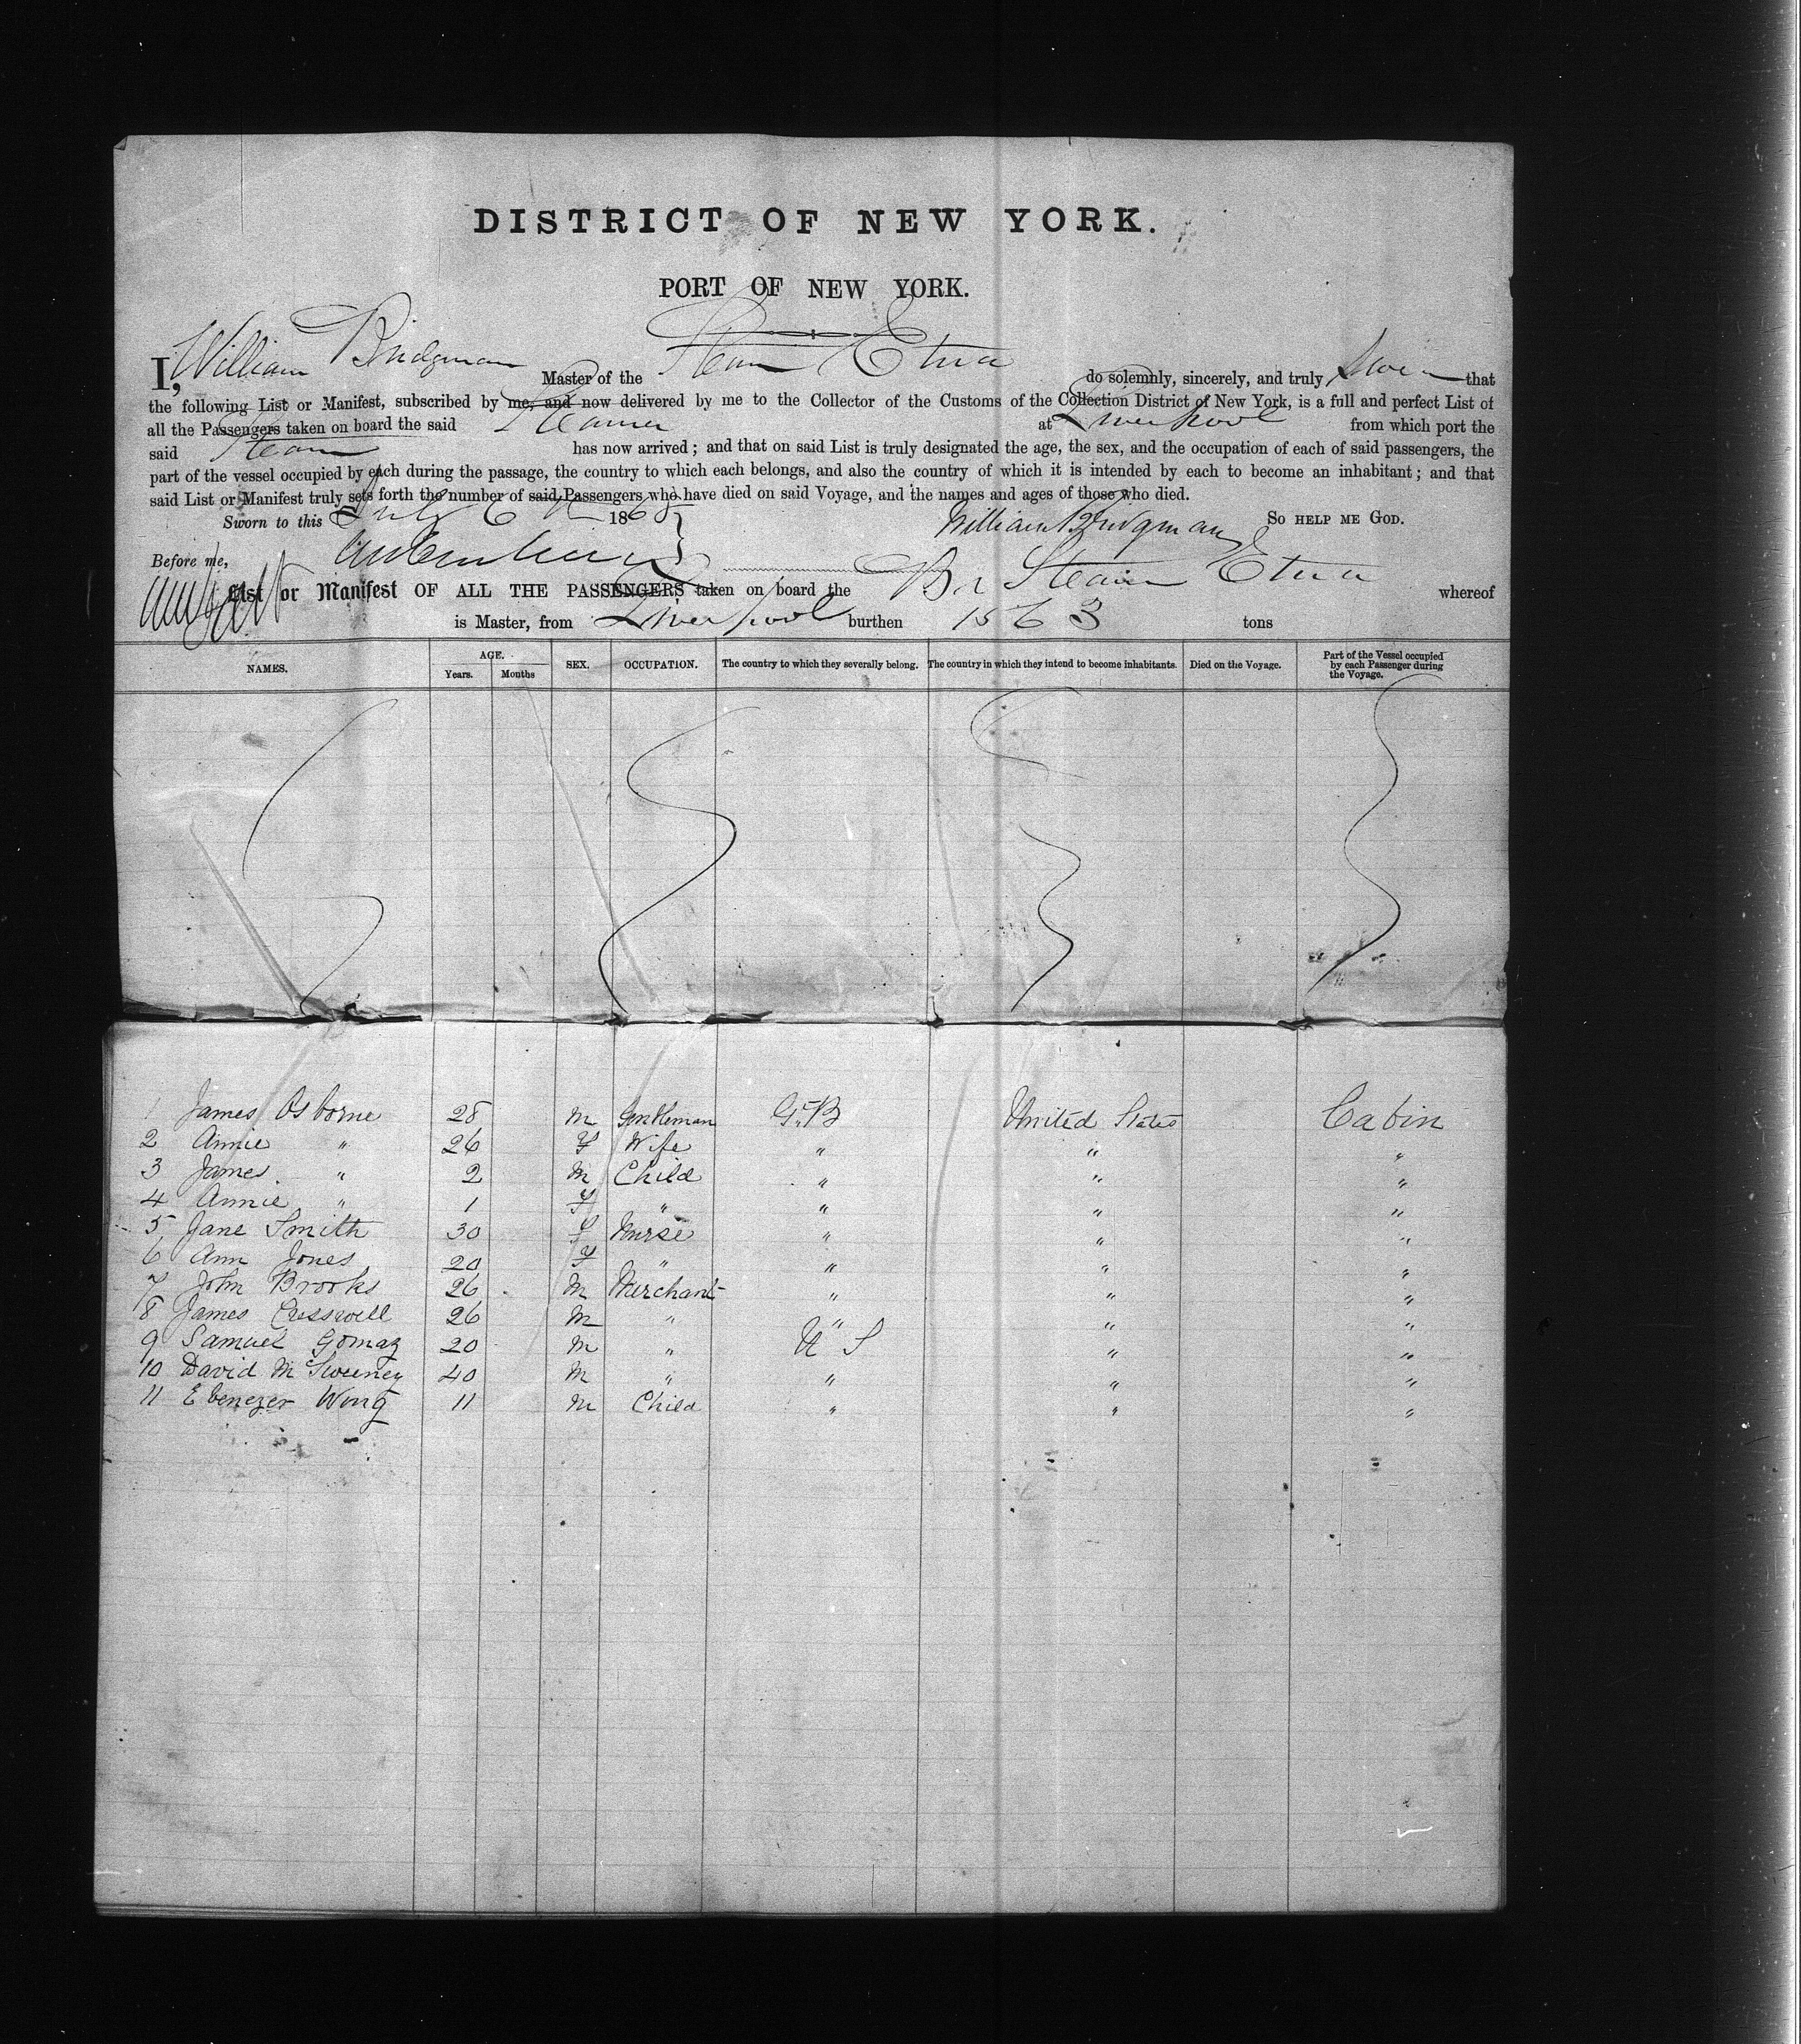 DISTRICT OF NEW YORK.
PORT OF NEW YORK.
I, William Bridgman Master of the Steam Etna do solemnly, sincerely, and truly Swear that
the following List or Manifest, subscribed by me, and now delivered by me to the Collector of the Customs of the Collection District of New York, is a full and perfect List of
all the Passengers taken on board the said Steamer at Liverpool from which port the
said Steam has now arrived; and that on said List is truly designated the age, the sex, and the occupation of each of said passengers, the
part of the vessel occupied by each during the passage, the country to which each belongs, and also the country of which it is intended by each to become an inhabitant; and that
said List or Manifest truly sets forth the number of said Passengers who have died on said Voyage, and the names and ages of those who died.
Sworn to this July 6th 1868 William Bridgman SO HELP ME GOD.
Before me,
List or Manifest OF ALL THE PASSENGERS taken on board the Br Steam Etna whereof
is Master, from Liverpool burthen 1563 tons
NAMES. AGE. Years. Months SEX. OCCUPATION. The country to which they severally belong. The country in which they intend to become inhabitants. Died on the Voyage. Part of the Vessel occupied by each Passenger during the Voyage.
1 James Osborne 28 M Gentleman G.B United States Cabin
2 Annie " 26 F Wife " " "
3 James " 2 M Child " " "
4 Annie " 1 F " " " "
5 Jane Smith 30 F Nurse " " "
6 Ann Jones 20 F " " " "
7 John Brooks 26 M Merchant " " "
8 James Cresswell 26 M " " " "
9 Samuel Gomaz 20 M " U S " "
10 David McSweeney 40 M " " " "
11 Ebenezer Wong 11 M Child " " "